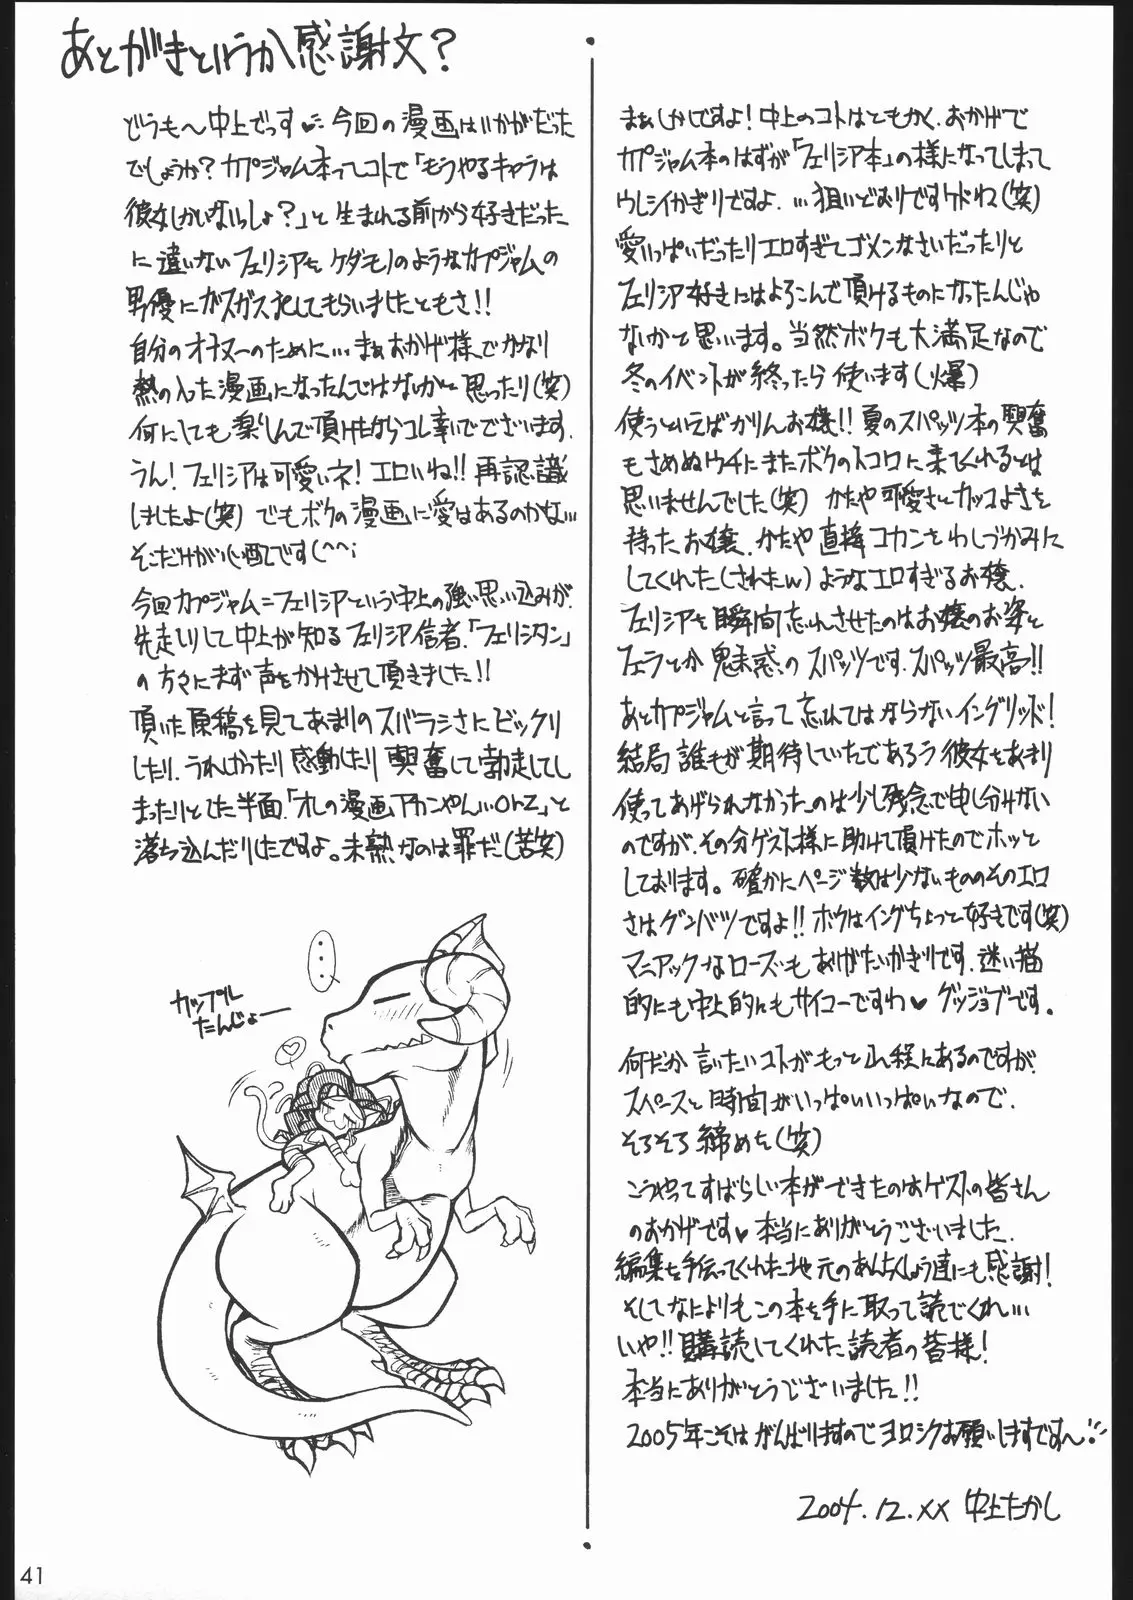 あとがきというか感謝文?
どうも〜中上でっす♥ 今回の漫画はいかがだった
でしょうか? カプジャム本ってコトで「もうやるキャラは
彼女しかいないっしょ?」と 生まれる前から好きだった
に違いないフェリシアを ケダモノのようなカプジャムの
男優にガスガス犯してもらいましたともさ!!
自分のオナヌーのために… まぁおかげ様でかなり
熱の入った漫画になったんではないかと 思ったり(笑)
何にしても楽しんで頂けたならコレ幸いでございます.
うん! フェリシアは可愛いネ! エロいね!! 再認識
しましたよ(笑) でもボクの漫画に愛はあるのかな…
そこだけが心配です(^^;
今回カプジャム=フェリシアという中上の強い思い込みが.
先走りして中上が知るフェリシア信者.「フェリシタン」
の方々にまず声をかけさせて頂きました!!
頂いた原稿を見てあまりのスバラシさにビックリ
したり.うれしかったり感動したり 興奮して勃走してし
まったりとした半面.「オレの漫画アカンやん…orz」と
落ち込んだりしたですよ。未熟なのは罪だ(苦笑)
カップル
たんじょー
…
まぁしかしですよ! 中上のコトはともかく. おかげで
カプジャム本のはずが「フェリシア本」の様になってしまって
ウレシイかぎりですよ. …狙いどおりですケドね(笑)
愛いっぱいだったりエロすぎてゴメンなさいだったりと
フェリシア好きにはよろこんで頂けるものになったんじゃ
ないかと思います。当然ボクも大満足なので
冬のイベントが終ったら使います(爆)
使うといえばかりんお嬢!! 夏のスパッツ本の興奮
もさめぬウチにまたボクのトコロに来てくれるとは
思いませんでした(笑) かたや可愛さとカッコよさを
持ったお嬢. かたや直接コカンをわしづかみに
してくれた(されたw)ようなエロすぎるお嬢.
フェリシアを瞬間忘れさせたのはお嬢のお姿と
フェラとか魅惑のスパッツです.スパッツ最高!!
あとカプジャムと言って忘れてはならないイングリッド!
結局誰もが期待していたであろう彼女をあまり
使ってあげられなかったのは少し残念で申し分けない
のですが.その分ゲスト様に助けて頂けたのでホッと
しております。確かにページ数は少ないもののそのエロ
さはグンバツですよ!! ボクはイングちょっと好きです(笑)
マニアックなローズもありがたいかぎりです.迷い猫
的にも中上的にもサイコーですわ♥ グッジョブです。
何だか言いたいコトがもっと山程にあるのですが.
スペースと時間がいっぱいいっぱいなので.
そろそろ締めを(笑)
こうやってすばらしい本ができたのはゲストの皆さん
のおかげです♥ 本当にありがとうございました.
編集を手伝ってくれた地元のあんちくしょう達にも感謝!
そしてなによりもこの本を手に取って読でくれ…
いや!! 購読してくれた読者の皆様!
本当にありがとうございました!!
2005年こそはがんばりますのでヨロシクお願いしますです〜!!
2004.12.XX 中上たかし
41